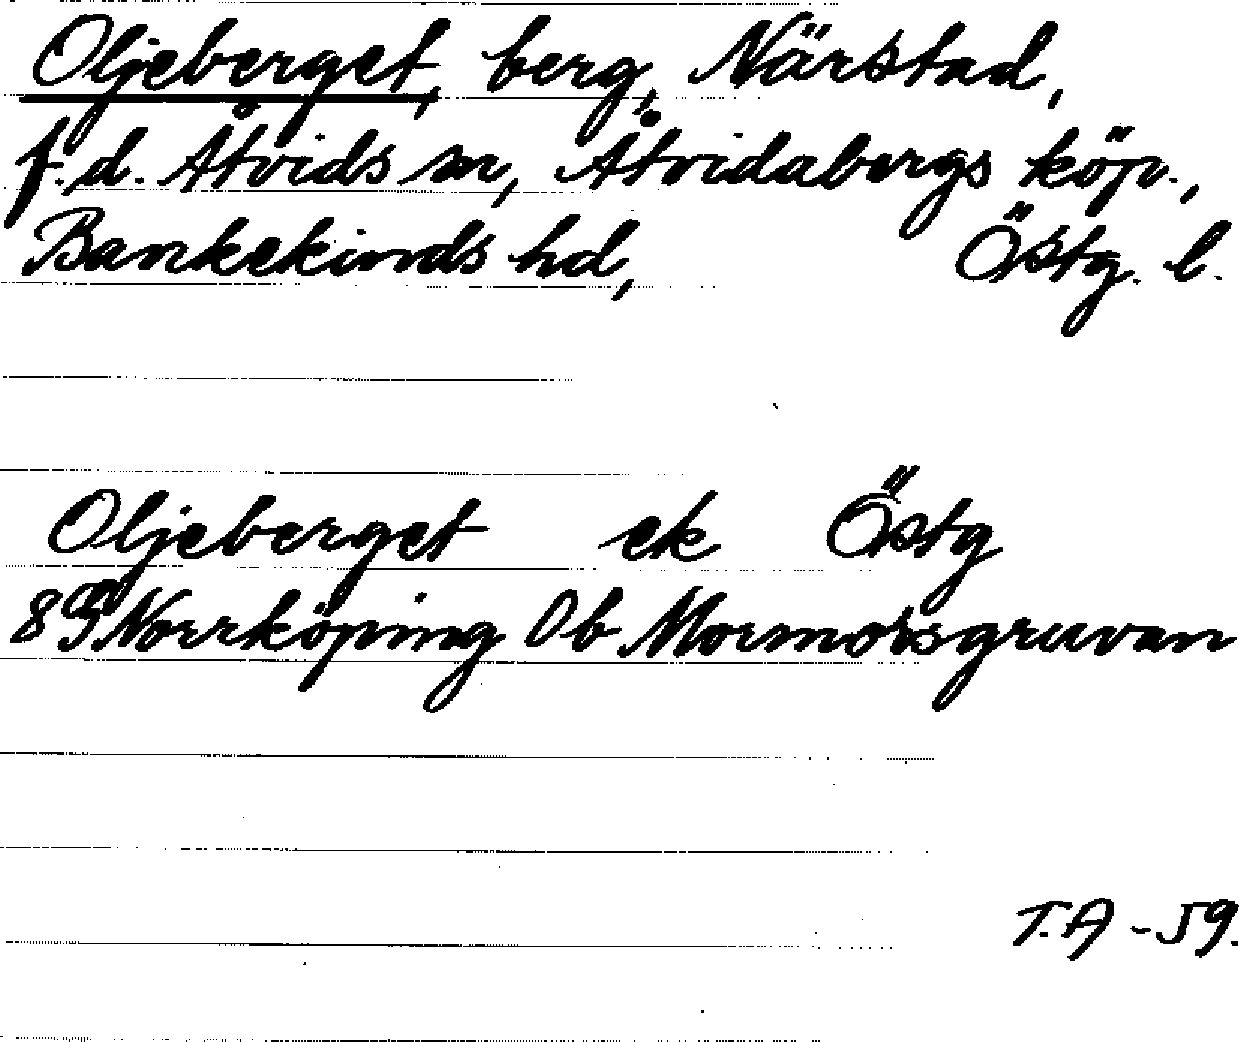 Oljeberget, berg, Närstad,
f.d. Åtvids sn, Åtvidabergs köp.,
Bankekinds hd, Östg. l.
Oljeberget ek Östg
8G Norrköping 0b Mormorsgruvan
T.A -59.